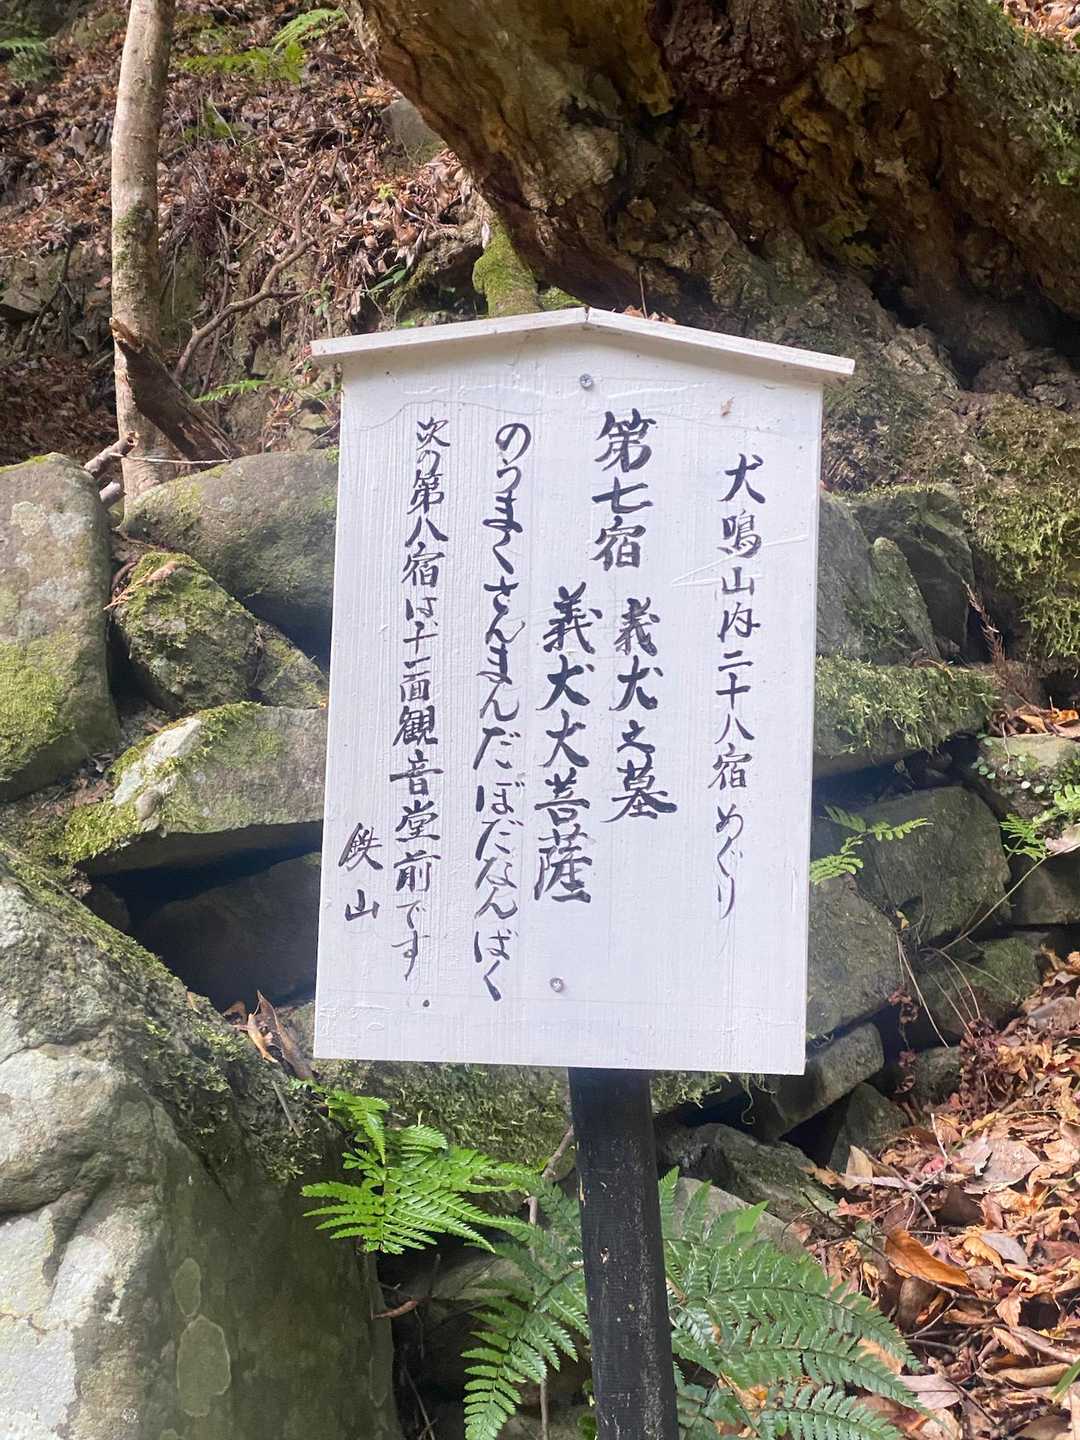 犬鳴山内二十八宿めぐり
第七宿 義犬之墓
義犬大菩薩
のうまくさんまんだぼだなんばく
次の第八宿は十一面観音堂前です。
鉄山